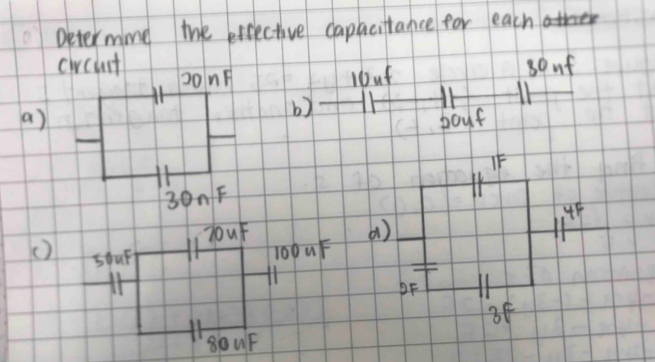 Determine the effective capacitance for each other
circuit
a)
20nF
30nF
b)
10uf
50uf
30nf
c)
50uF
70uF
80uF
100uF
d)
1F
2F
3F
4F